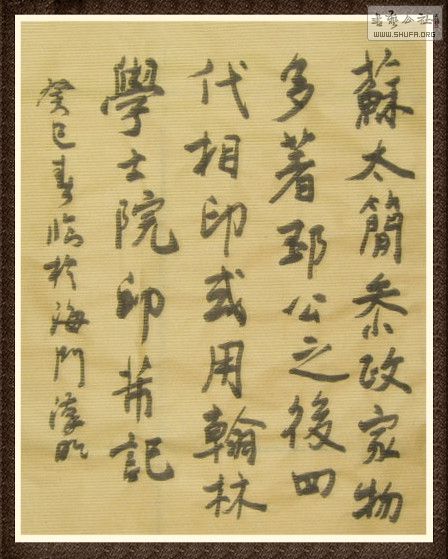 蘇太簡參政家物
多著邳公之後四
代相印或用翰林
學士院印芾記
癸巳春臨於海門淳
書藝公社
WWW.SHUFA.ORG